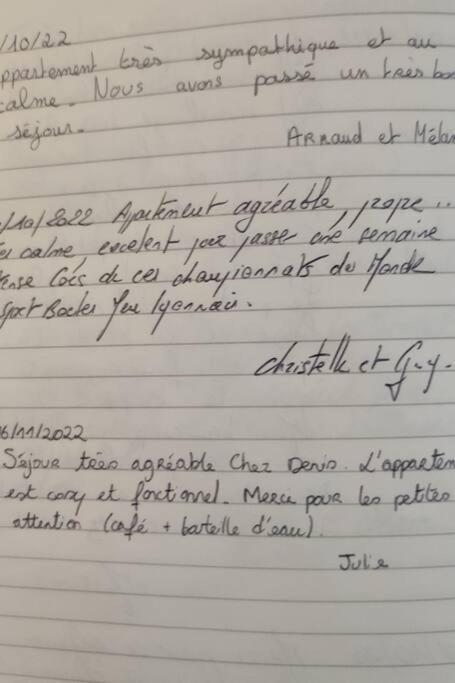 /10/22
ppartement très sympathique et au
calme. Nous avons passé un très bon
séjour.
Arnaud et Mélan
/10/2022 Appartement agréable, pope...
calme, excelent pour passer une semaine
ense lors de ces championnats du Monde
Sport Boules Jeu lyonnais.
Christelle et Guy.
6/11/2022
Séjour très agréable chez Denis. L'appartem
est cosy et fonctionnel. Merci pour les petites
attention (café + bouteille d'eau).
Julie